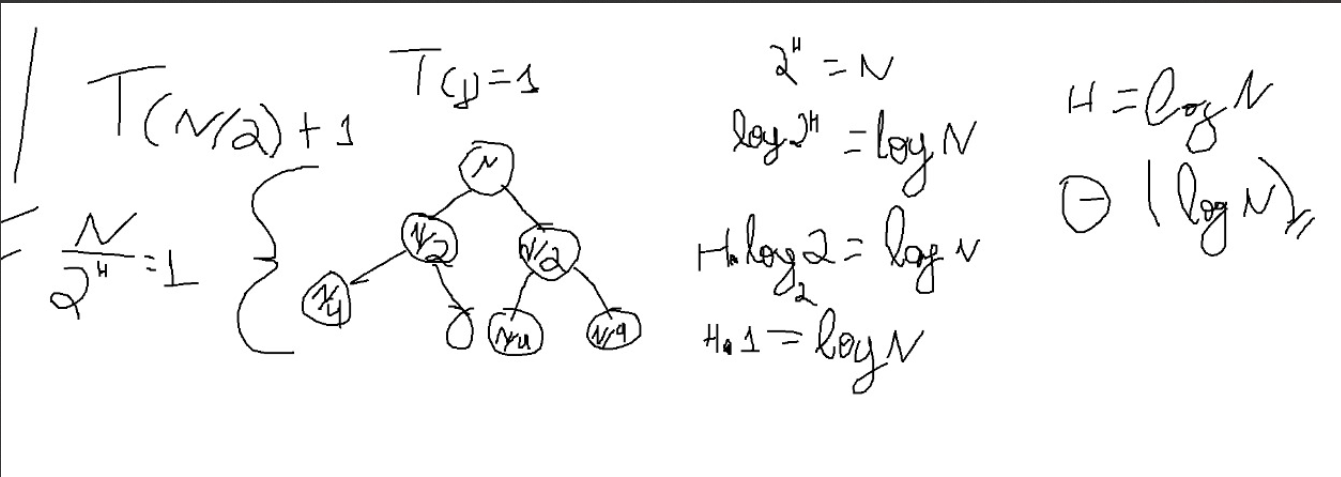 T(N/2)+1
T(1)=1
N/2^H=1
N
N/2
N/2
N/4
N/4
N/4
2^H=N
log 2^H=log N
H.log₂2=log N
H.1=log N
H=log N
Θ(log N)